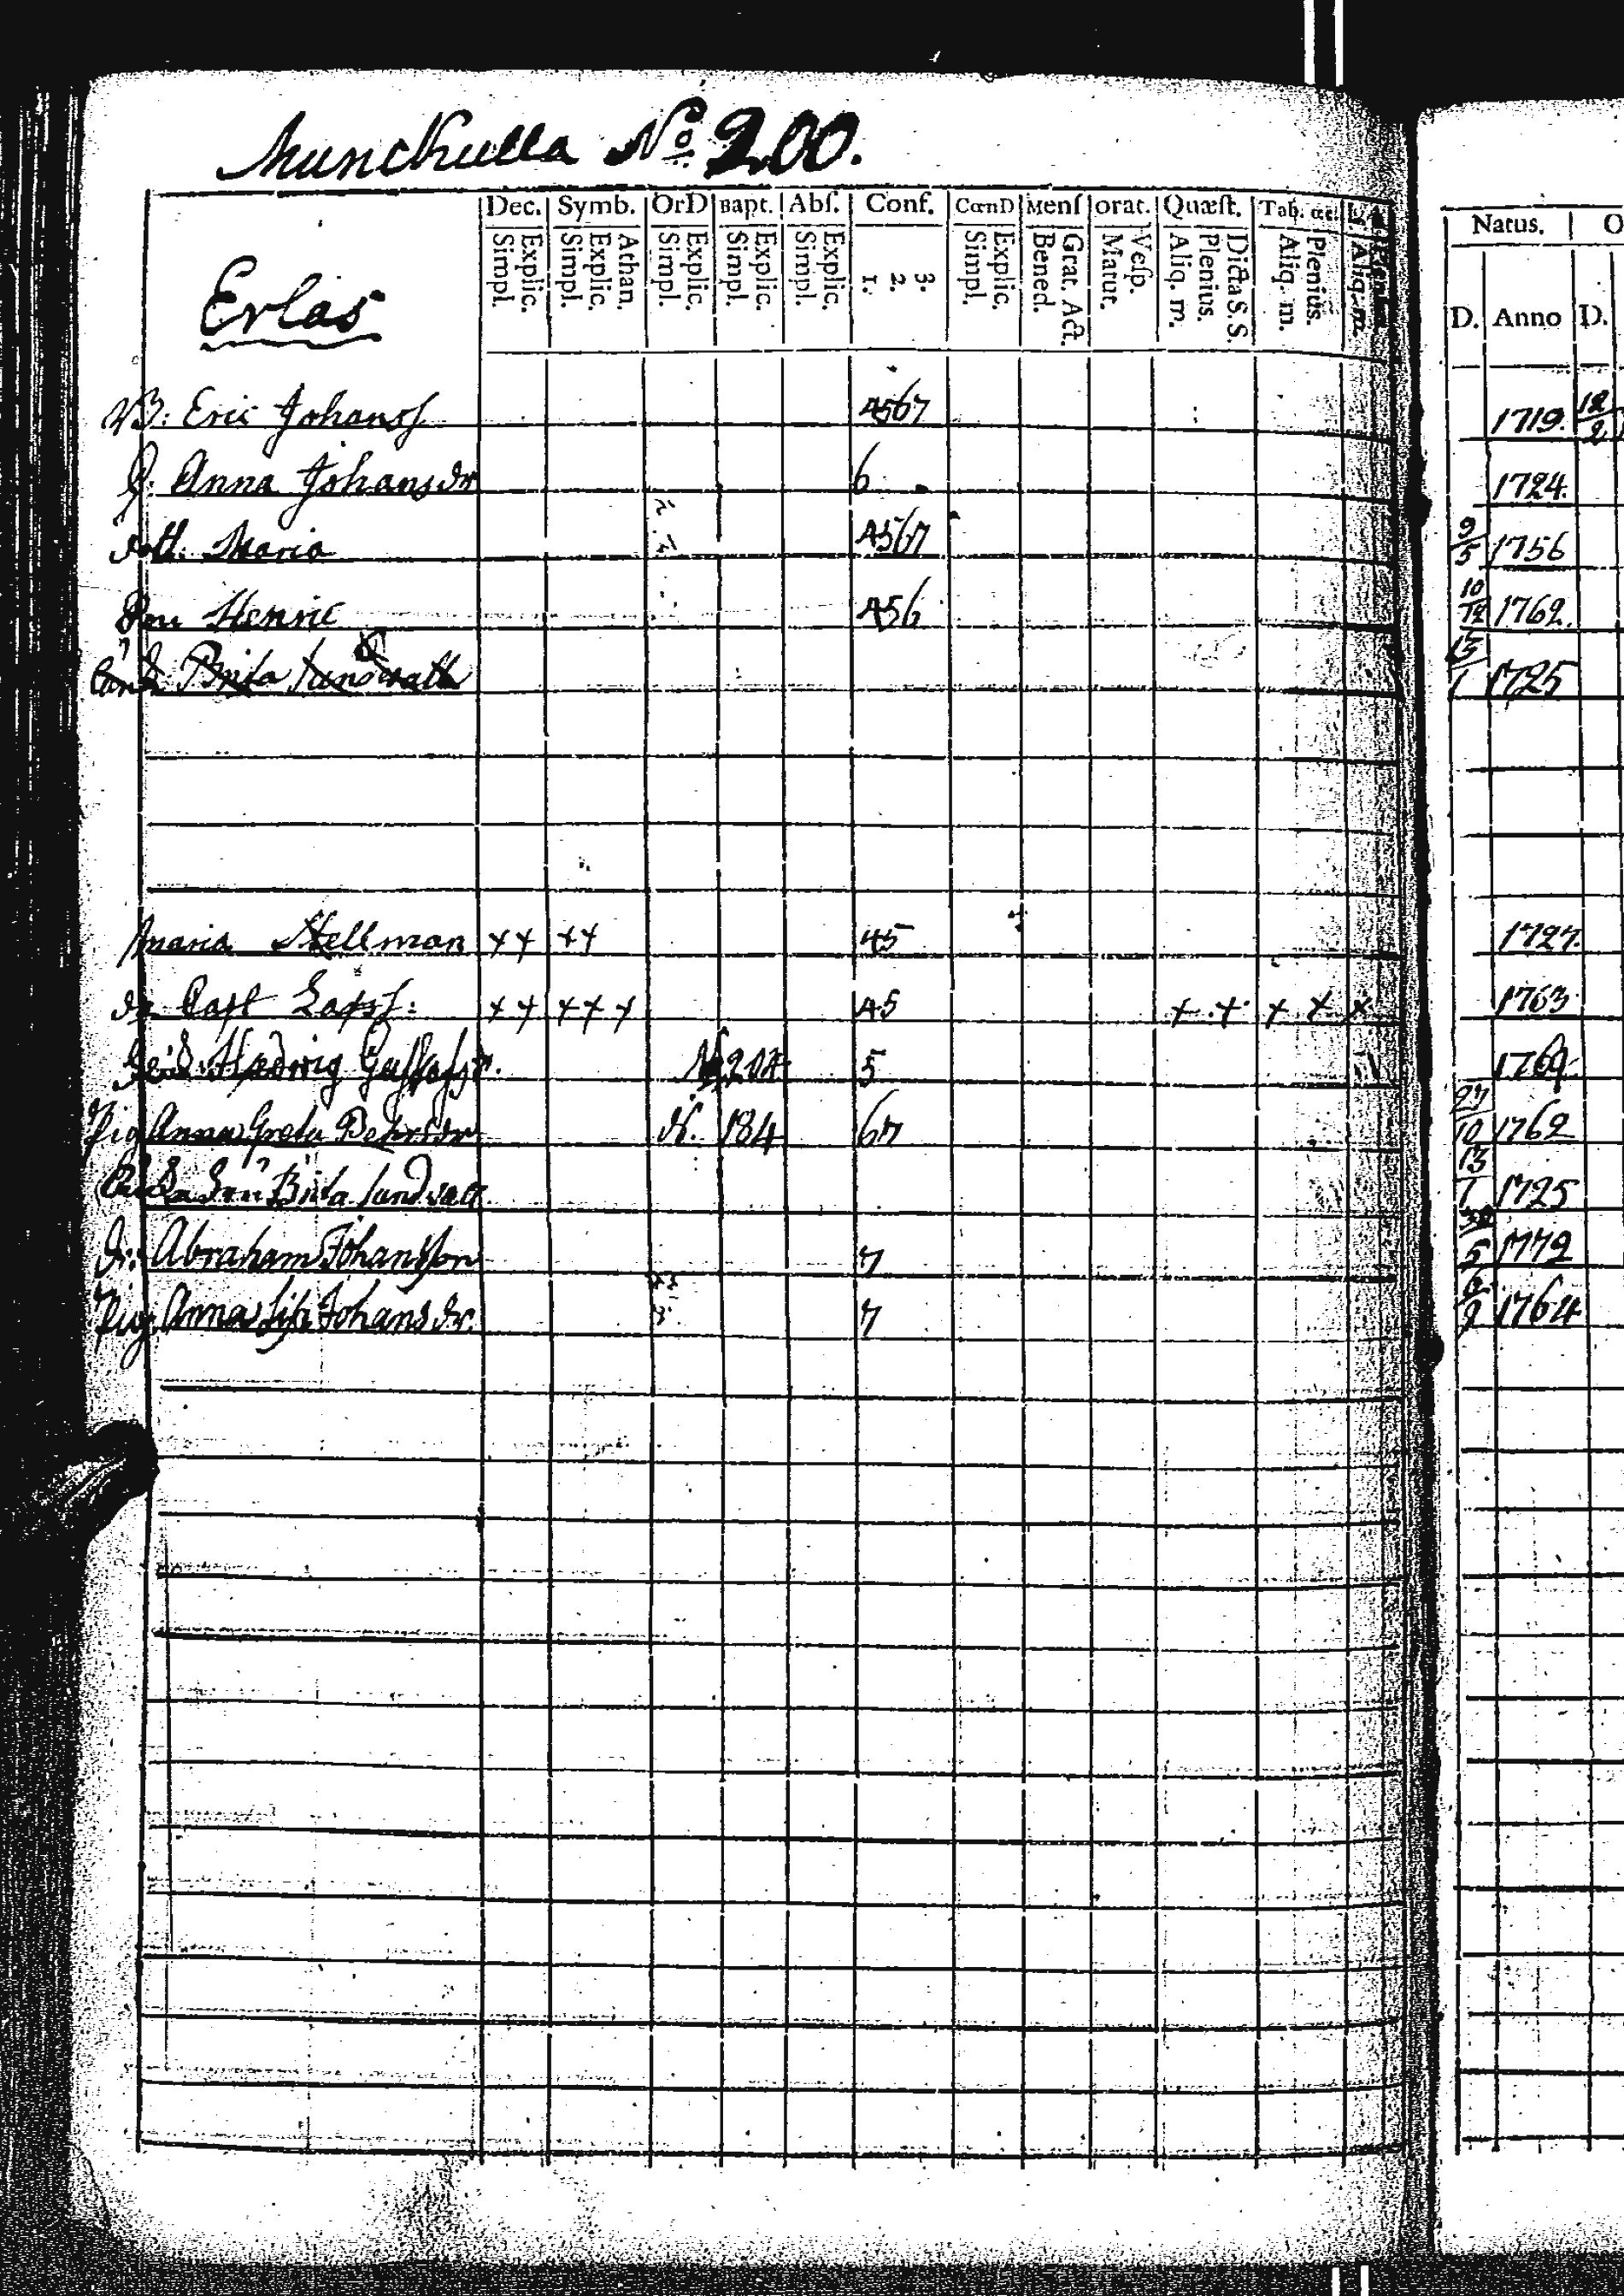 Munckulla No 200.
Dec. Symb. OrD Bapt. Abſ. Conf. CœnD Menſ orat. Quæſt. Tab. œc.
Explic. Simpl. Athan. Explic. Simpl. Explic. Simpl. Explic. Simpl. Explic. Simpl. 3. 2. 1. Explic. Simpl. Grat. Act. Bened. Veſp. Matut. Dicta S. S. Plenius. Aliq. m. Plenius. Aliq. m. Aliq. m.
Natus. O
D. Anno D.
Erlas
B: Eric Johanss 4567 1719. 12/2
H. Anna Johansdr 6 1724.
dott. Maria 4567 9/5 1756
Son Henric 456 10/12 1762.
Brita Lundwall 13/1 1725
Maria Hellman ++ ++ 45 1727.
dr Cast ++ +++ 45 + + + + + 1763
Hedwig No 204 5 1769
Pig Anna Greta Dersdr N. 184 67 27/10 1762
Brita Lundvall 13/1 1725
Dr: Abraham Johansson 7 30/5 1772
Pig. Anna Lisa Johansdr. 7 1764